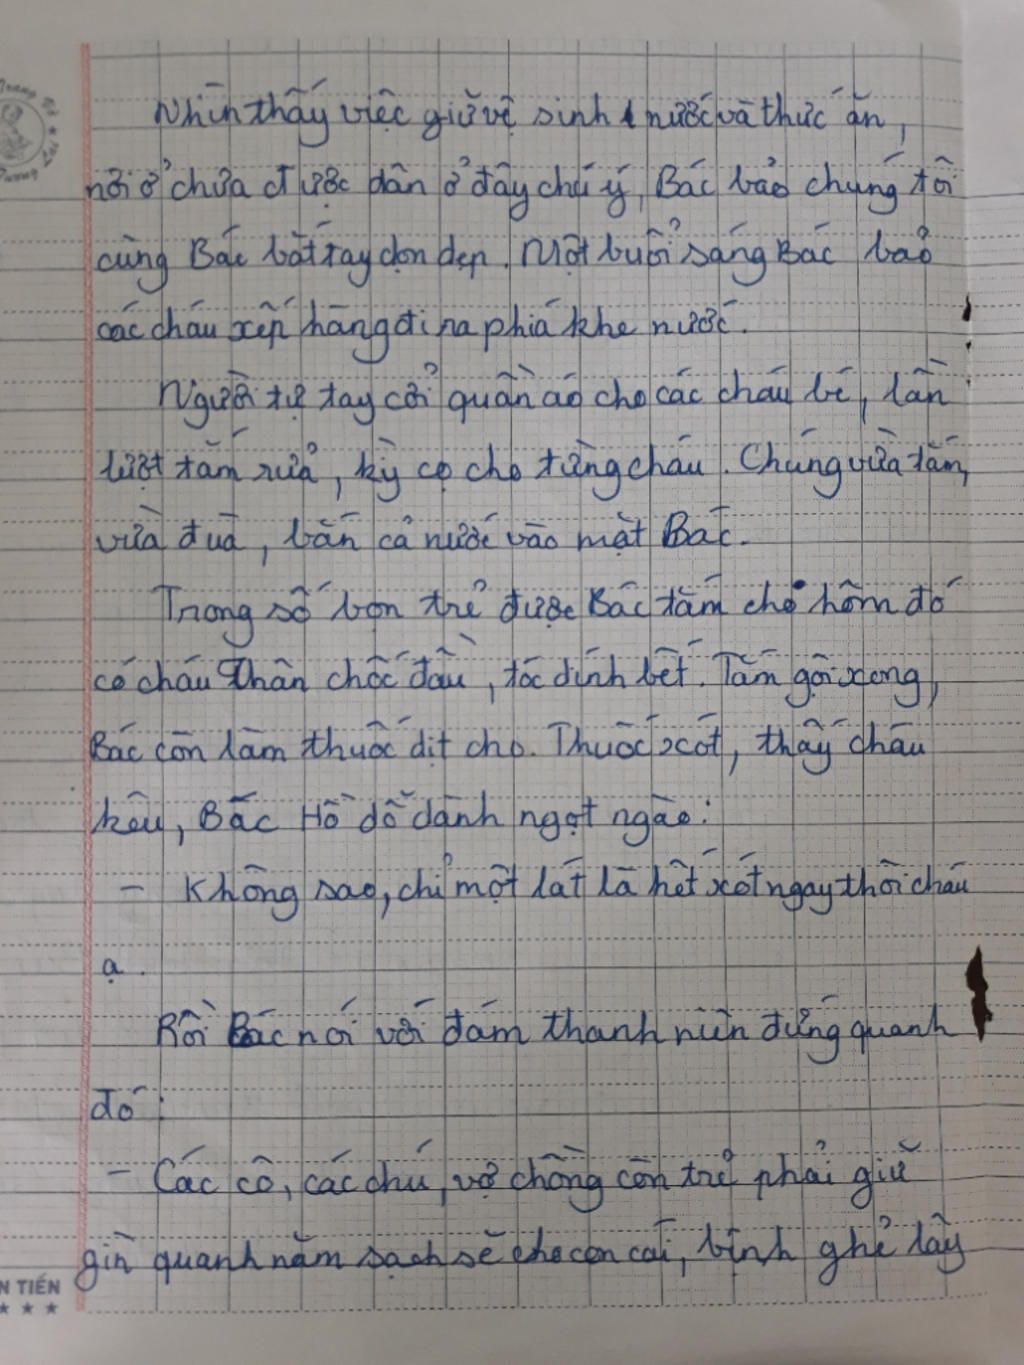 Nhìn thấy việc giữ vệ sinh nước và thức ăn,
nơi ở chưa được dân ở đây chú ý, Bác bảo chúng tôi
cùng Bác bắt tay dọn dẹp. Một buổi sáng Bác bảo
các cháu xếp hàng đi ra phía khe nước.
Người tự tay cởi quần áo cho các cháu bé, lần
lượt tắm rửa, kỳ cọ cho từng cháu. Chúng vừa tắm,
vừa đùa, bắn cả nước vào mặt Bác.
Trong số bọn trẻ được Bác tắm cho hôm đó
có cháu Thân chốc đầu, tóc dính bết. Tắm gội xong,
Bác còn làm thuốc dịt cho. Thuốc xót, thấy cháu
kêu, Bác Hồ dỗ dành ngọt ngào:
- Không sao, chỉ một lát là hết xót ngay thôi cháu
ạ.
Rồi Bác nói với đám thanh niên đứng quanh
đó:
- Các cô, các chú, vợ chồng còn trẻ phải giữ
gìn quanh năm sạch sẽ cho con cái, bệnh ghẻ lây
N TIẾN